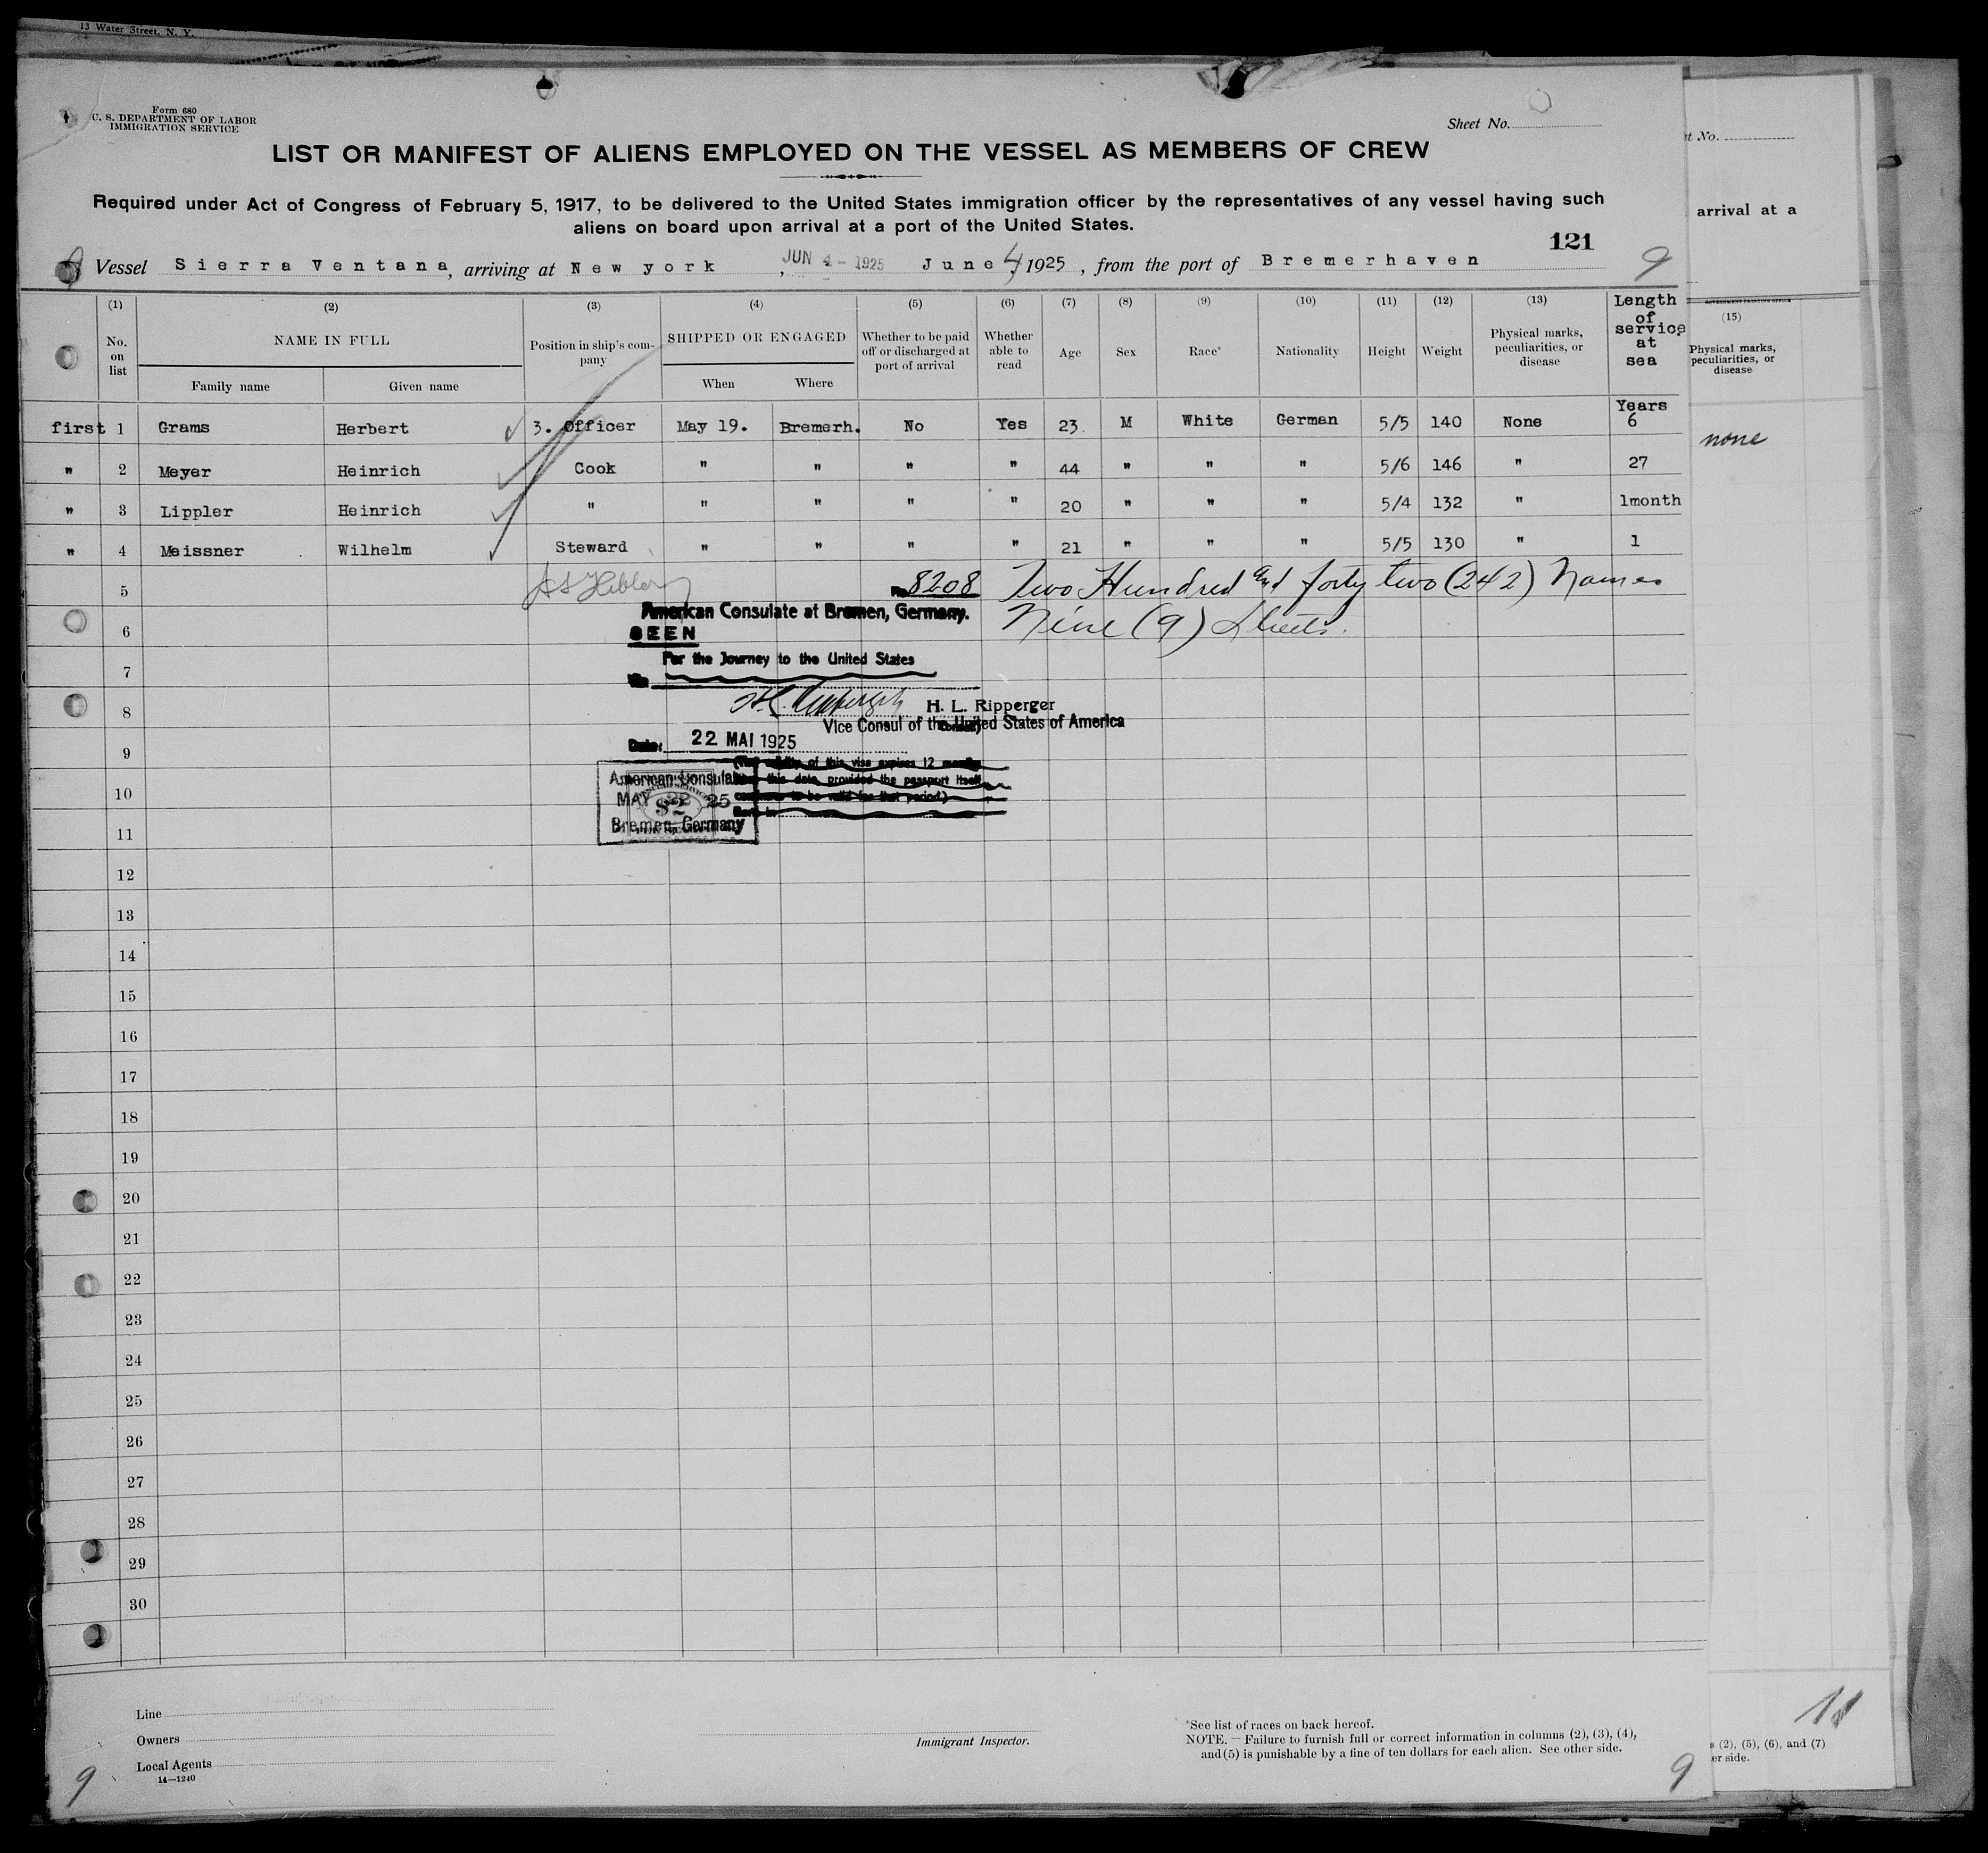 13 Water Street, N. Y.
Form 680
U. S. DEPARTMENT OF LABOR
IMMIGRATION SERVICE
Sheet No.
LIST OR MANIFEST OF ALIENS EMPLOYED ON THE VESSEL AS MEMBERS OF CREW
Required under Act of Congress of February 5, 1917, to be delivered to the United States immigration officer by the representatives of any vessel having such
aliens on board upon arrival at a port of the United States.
121
9 Vessel Sierra Ventana, arriving at New york, JUN 4 - 1925 June 4, 1925, from the port of Bremerhaven 9
(1) (2) (3) (4) (5) (6) (7) (8) (9) (10) (11) (12) (13) Length of service at sea
No. on list NAME IN FULL Position in ship's company SHIPPED OR ENGAGED Whether to be paid off or discharged at port of arrival Whether able to read Age Sex Race* Nationality Height Weight Physical marks, peculiarities, or disease
Family name Given name When Where
Years
first 1 Grams Herbert 3. Officer May 19. Bremerh. No Yes 23 M White German 5/5 140 None 6
" 2 Meyer Heinrich Cook " " " " 44 " " " 5/6 146 " 27
" 3 Lippler Heinrich " " " " " 20 " " " 5/4 132 " 1month
" 4 Meissner Wilhelm Steward " " " " 21 " " " 5/5 130 " 1
5
8208 Two Hundred and forty two (242) Names
American Consulate at Bremen, Germany.
Nine (9) Sheets.
6
SEEN
For the Journey to the United States
7
8
H. L. Ripperger
Vice Consul of the United States of America
Date: 22 MAI 1925
9
(The validity of this visa expires 12 months
this date, provided the passport itself
continues to be valid for that period)
American Consulate
MAY 22 25
Bremen, Germany
$2
10
11
12
13
14
15
16
17
18
19
20
21
22
23
24
25
26
27
28
29
30
Line
Owners
Local Agents
14—1240
Immigrant Inspector.
*See list of races on back hereof.
NOTE. — Failure to furnish full or correct information in columns (2), (3), (4),
and (5) is punishable by a fine of ten dollars for each alien. See other side.
9
9
t No.
arrival at a
(15)
Physical marks,
peculiarities, or
disease
none
11
s (2), (5), (6), and (7)
er side.